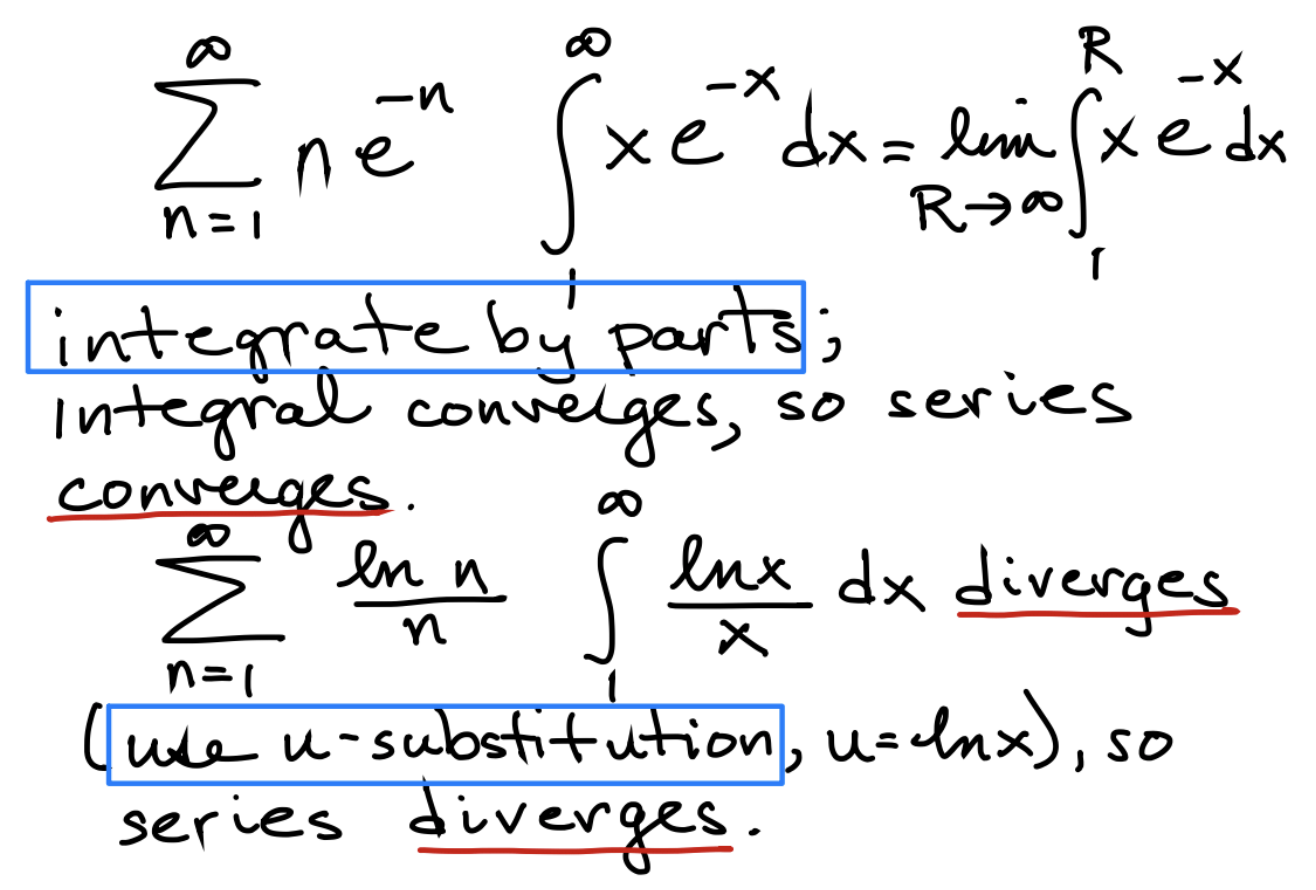 ∞ ∑ n=1 n e^{-n} ∫_1^∞ x e^{-x} dx = lim R→∞ ∫_1^R x e^{-x} dx
integrate by parts;
integral converges, so series
converges.
∞ ∑ n=1 ln n / n ∫_1^∞ lnx / x dx diverges
(use u-substitution, u=lnx), so
series diverges.